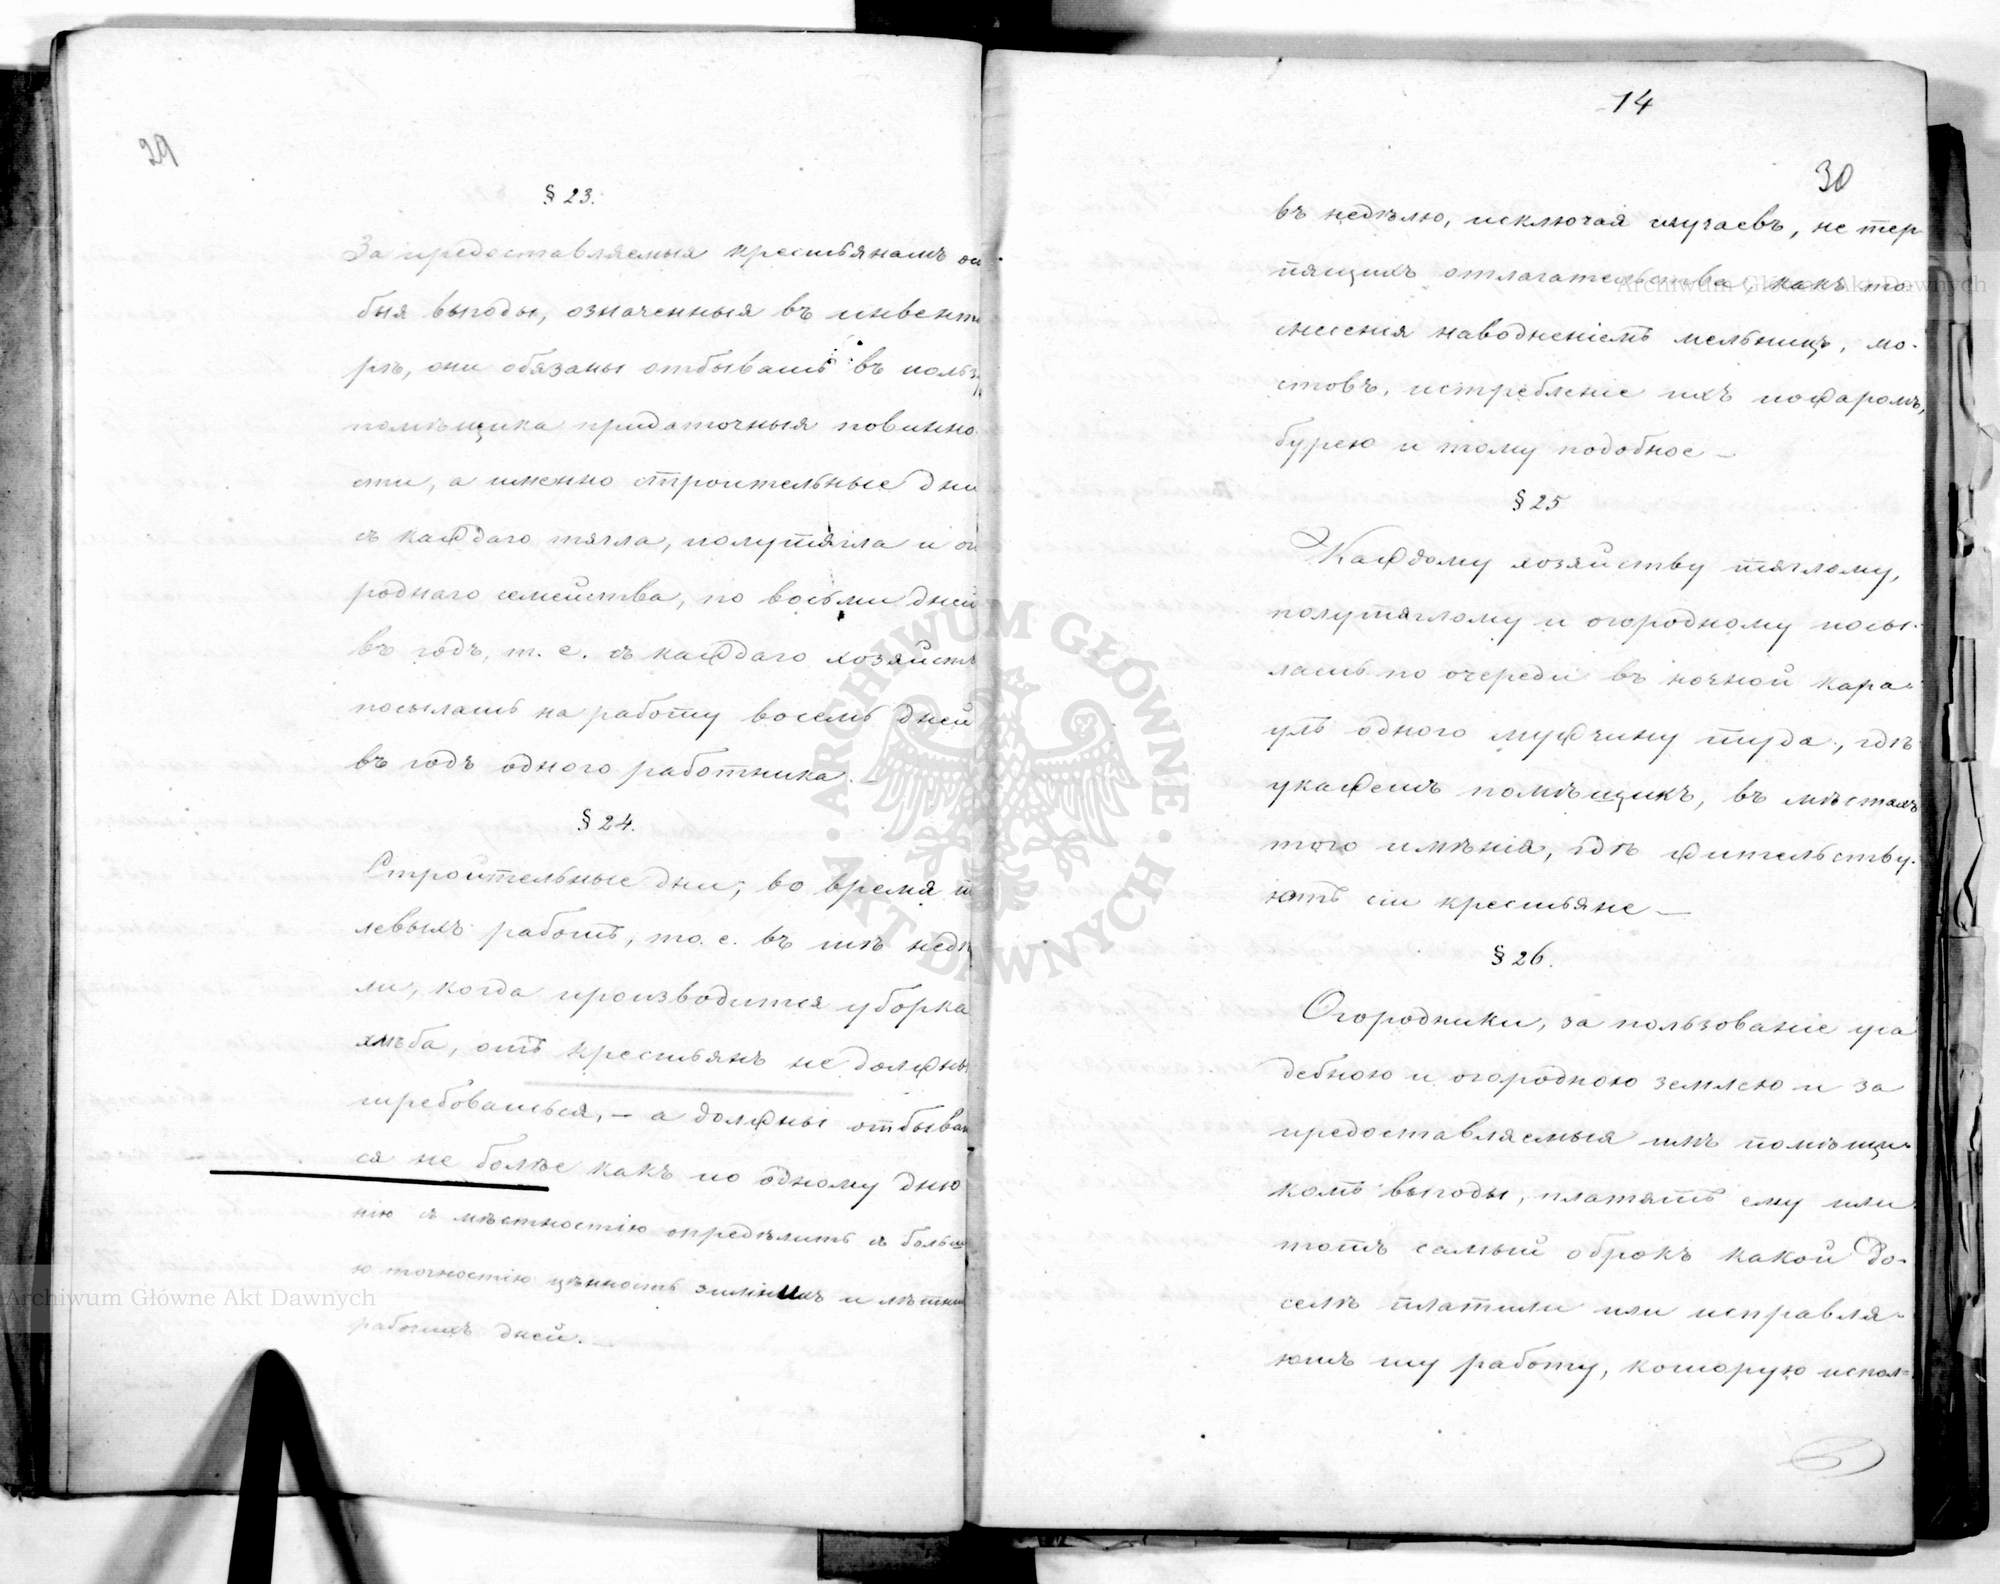 29
§ 23.
За предоставляемыя крестьянамъ осо
быя выгоды, означенныя въ инвента
рѣ, они обязаны отбывать въ пользу
помѣщика придаточныя повинно
сти, а именно строительные дни
съ каждаго тягла, полутягла и ого
роднаго семейства, по восьми дней
въ годъ, т. е. съ каждаго хозяйства
посылать на работу восемь дней
въ годъ одного работника.
§ 24.
Строительные дни, во время по
левыхъ работъ, то. е. въ тѣ недѣ
ли, когда производится уборка
хлѣба, отъ крестьянъ не должны
требоваться, – а должны отбывать
ся не болѣе какъ по одному дню
нію съ мѣстностію опредѣлить съ больш
ю точностію цѣнность зимнихъ и лѣтнихъ
рабочихъ дней.
14
30
въ недѣлю, исключая случаевъ, не тер
пящихъ отлагательства, какъ то
снесенія наводненіемъ мельницъ, мо-
стовъ, истребленіе ихъ пожаромъ,
бурею и тому подобное –
§ 25
Каждому хозяйству тяглому,
полутяглому и огородному посы-
лать по очереди въ ночной кара-
улъ одного мужчину туда, гдѣ
укажетъ помѣщикъ, въ мѣстахъ
того имѣнія, гдѣ жительству-
ютъ сіи крестьяне –
§ 26.
Огородники, за пользованіе уса
дебною и огородною землею и за
предоставляемыя имъ помѣщи-
комъ выгоды, платятъ ему или
тотъ самый оброкъ какой до-
селѣ платили или исправля-
ютъ ту работу, которую испол-
Archiwum Główne Akt Dawnych
Archiwum Główne Akt Dawnych
ARCHIWUM GŁÓWNE AKT DAWNYCH